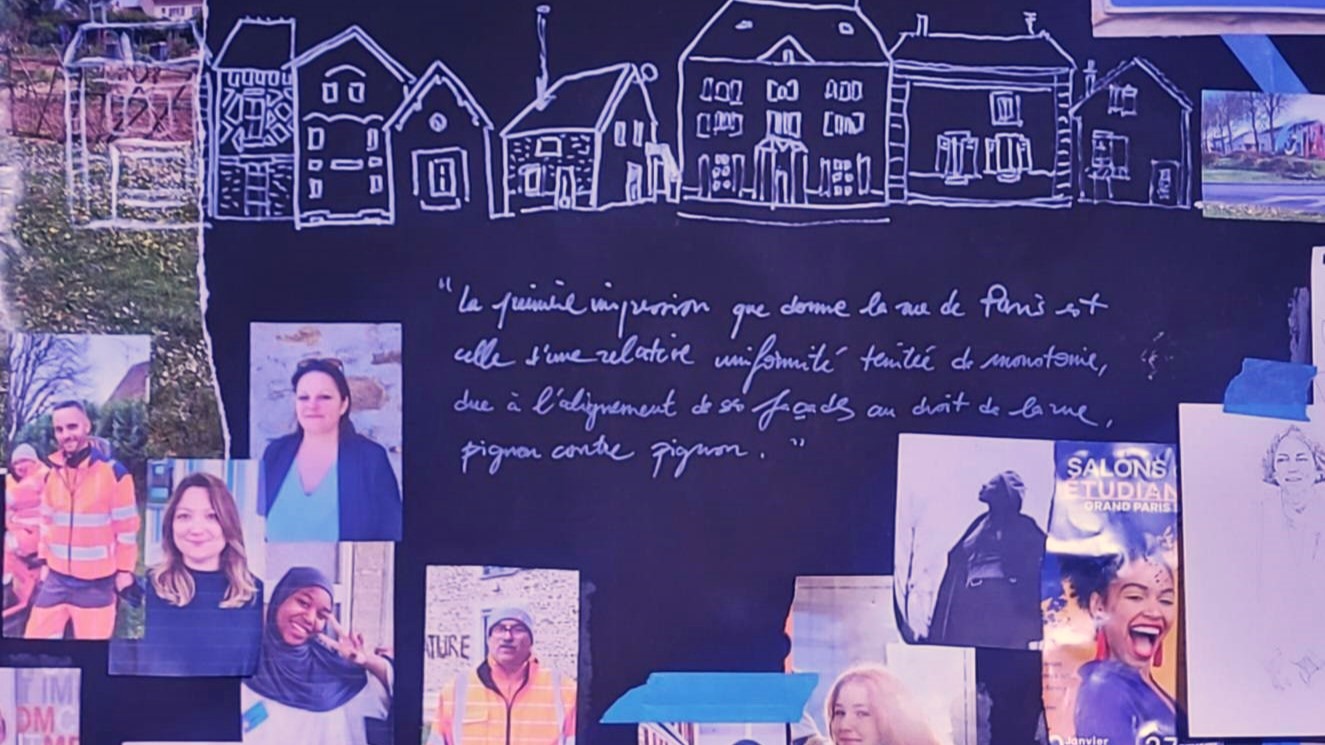 "La première impression que donne la rue de Paris est
celle d'une relative uniformité teintée de monotonie,
due à l'alignement de ses façades au droit de la rue,
pignon contre pignon."
SALONS
ETUDIAN
GRAND PARIS
ATURE
Janvier
27